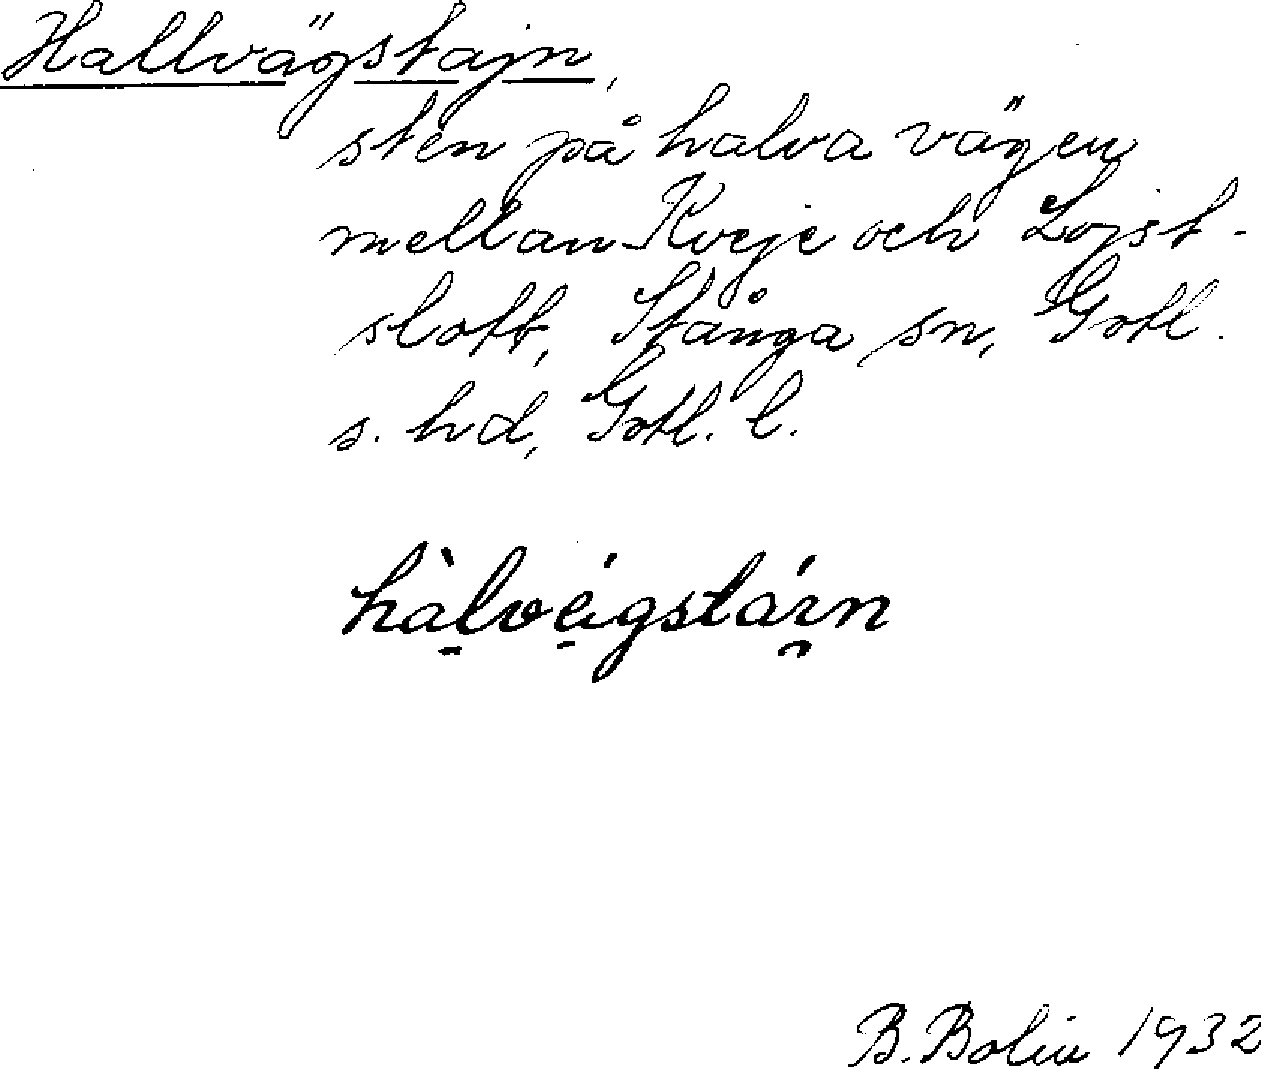 Hallvägstajn,
sten på halva vägen
mellan Kveje och Lojst-
slott, Stånga sn, Gotl.
s. hd, Gotl. l.
hàlvéigstáin
B. Bolin 1932